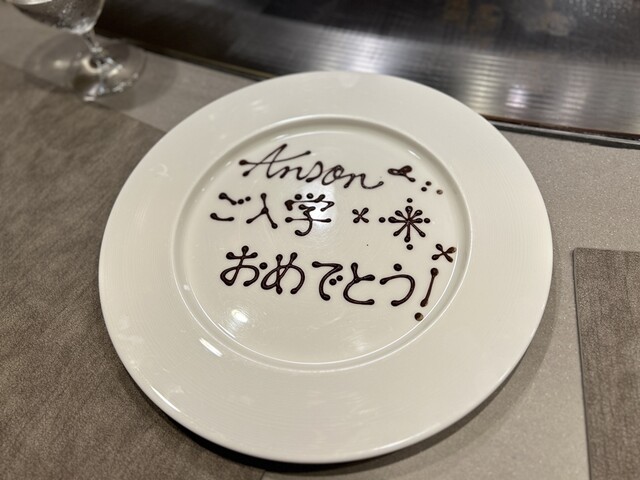 Anson
ご入学
おめでとう!